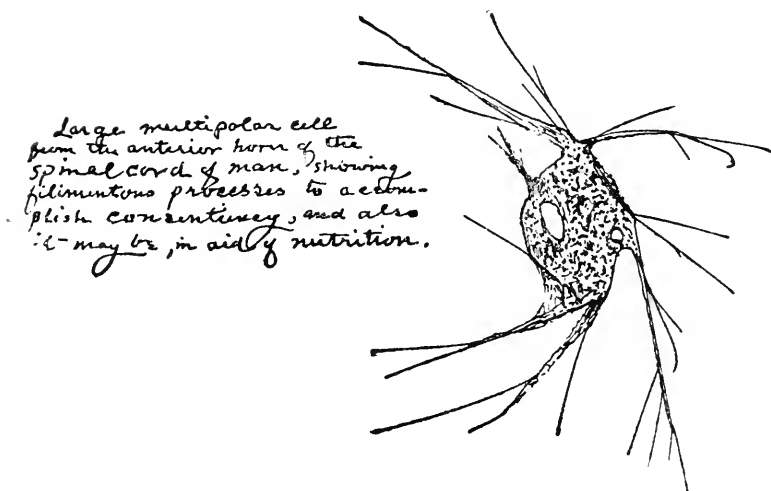 Large multipolar cell
from the anterior horn of the
spinal cord of man, showing
filimentous processes to accom-
plish consentiency, and also
it may be, in aid of nutrition.